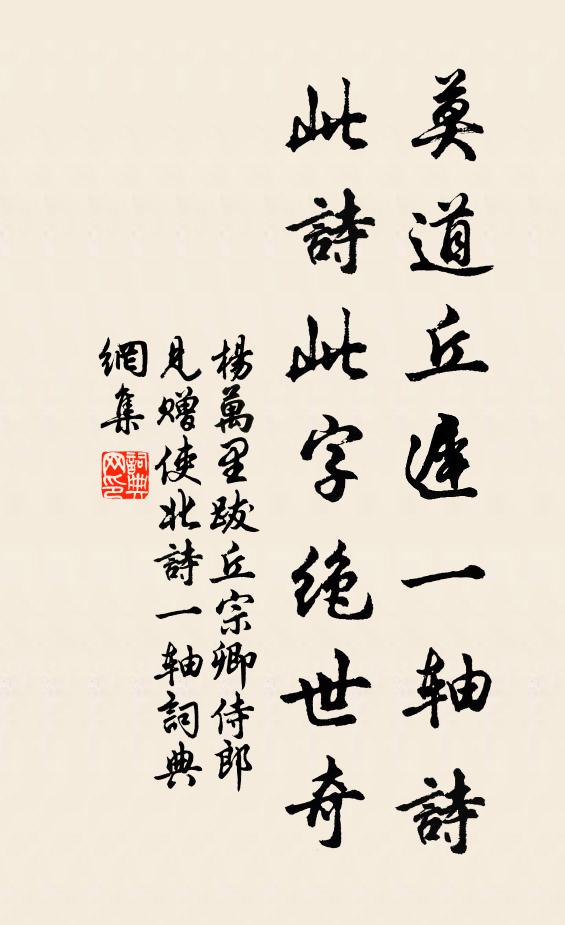 莫道丘遲一軸詩
此詩此字絶世奇
楊萬里跋丘宗卿侍郎
見贈使北詩一軸詞典
網集
詞典
网印